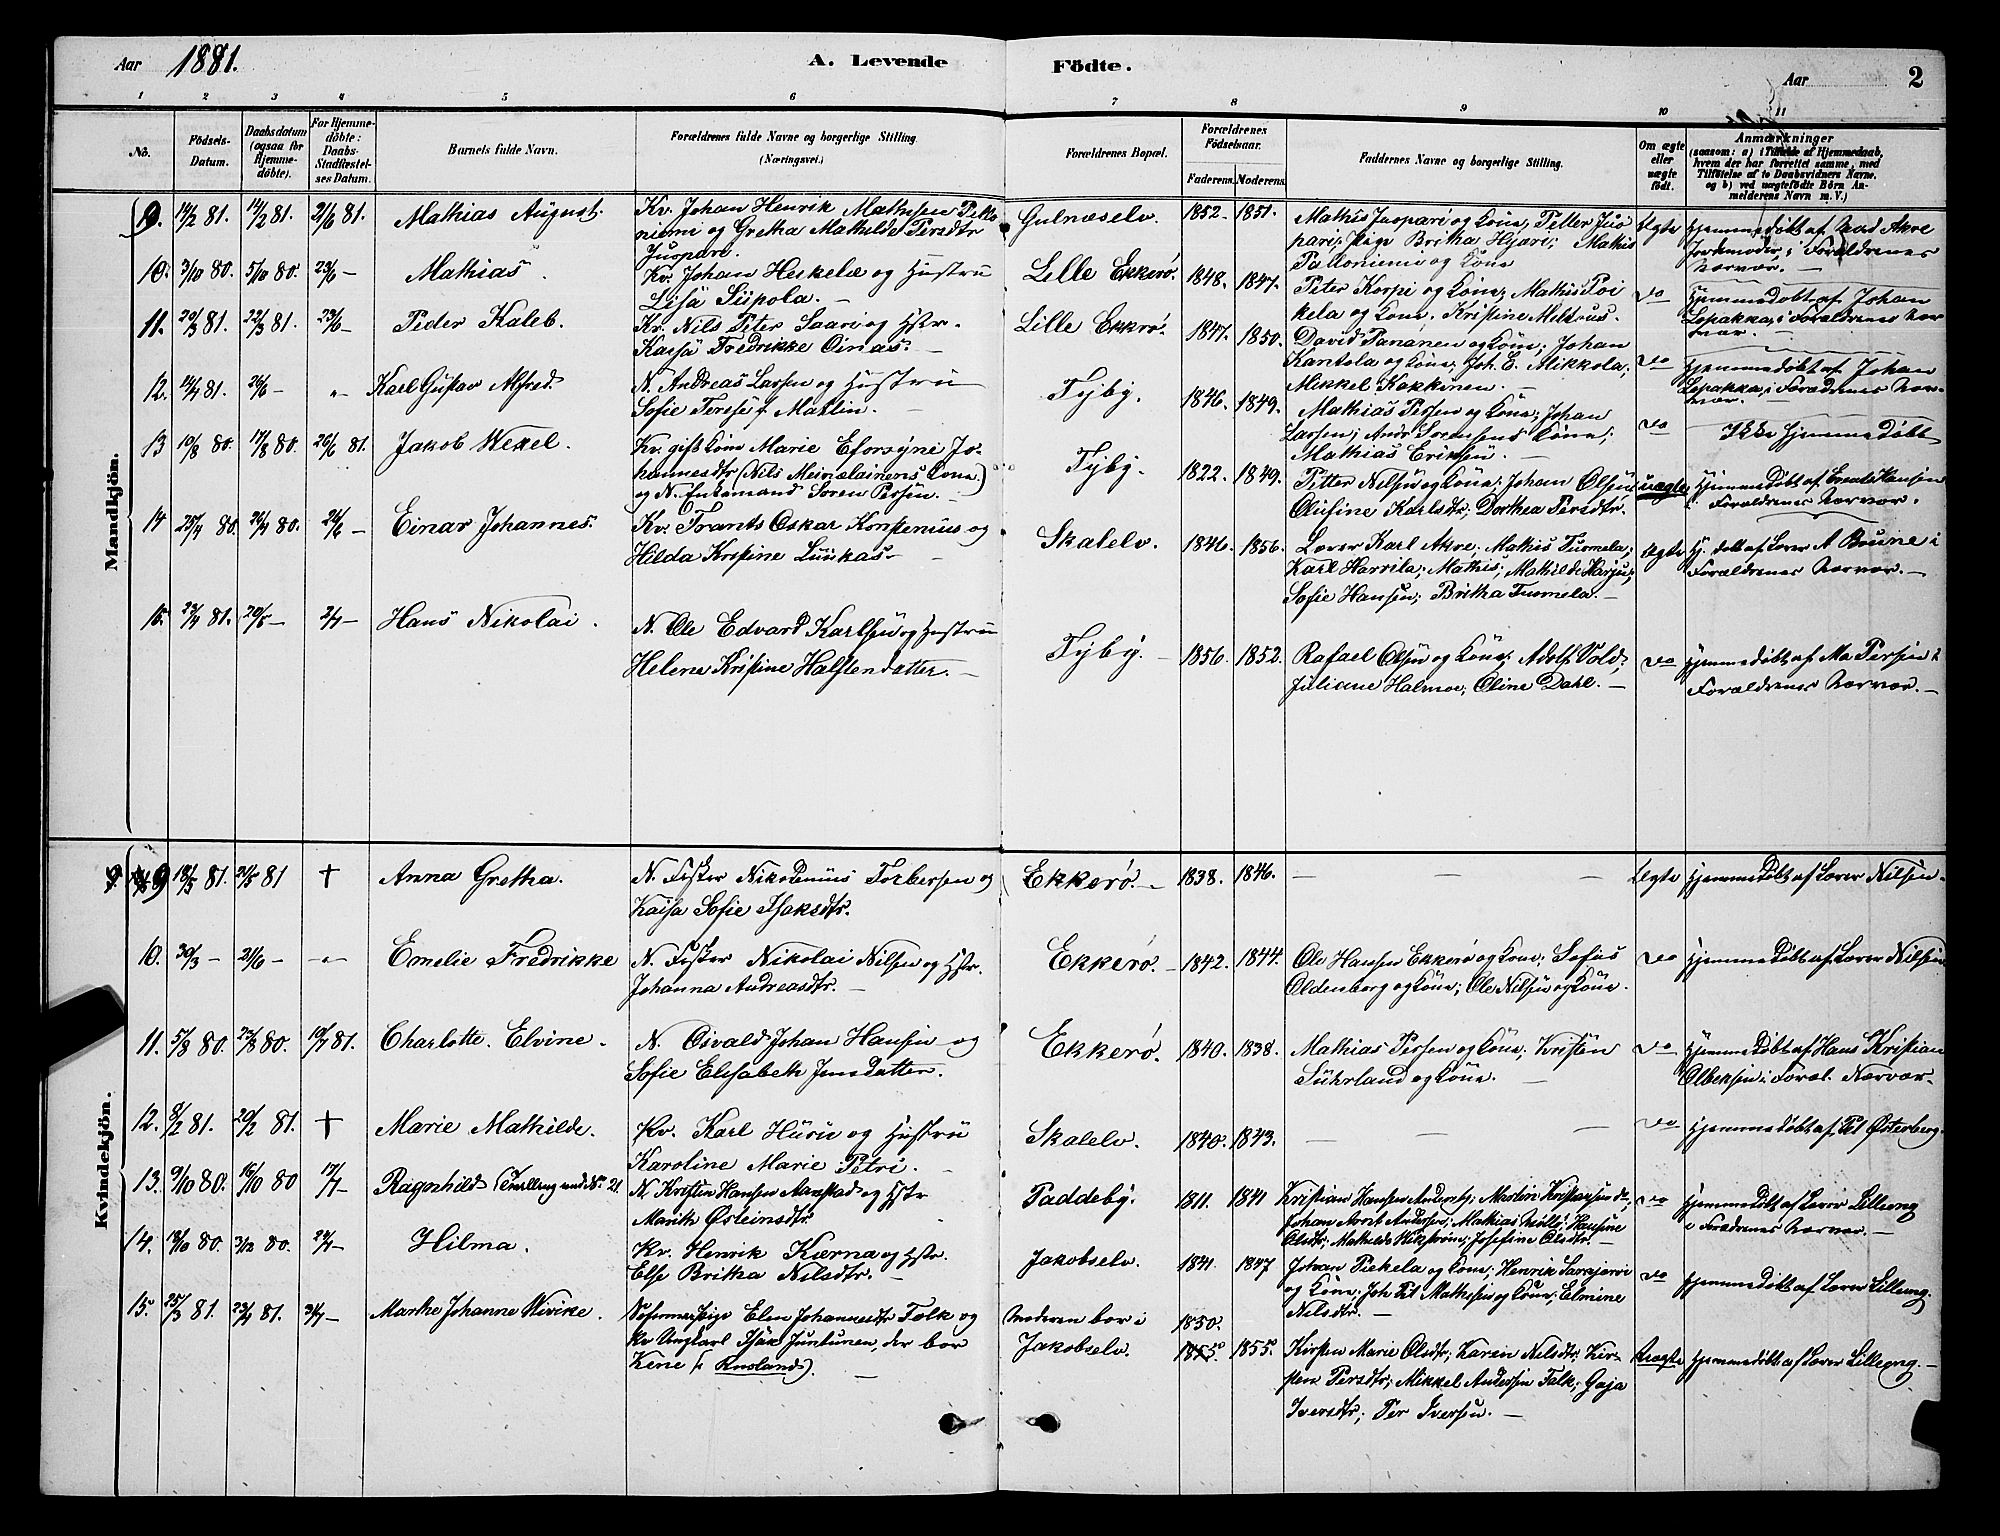 Aar 1881. A. Levende Födte. Aar 2
1 2 3 4 5 6 7 8 9 10 11
No. Födsels-Datum. Daabsdatum (ogsaa for Hjemme-döbte). For Hjemme-döbte: Daabs-Stadfæstel-ses Datum. Barnets fulde Navn. Forældrenes fulde Navne og borgerlige Stilling. (Næringsvei.) Forældrenes Bopæl. Forældrenes Födselsaar. Faderens. Moderens. Faddernes Navne og borgerlige Stilling. Om ægte eller uægte födt. Anmærkninger (saasom: a) i Tilfælde af Hjemmedaab, hvem der har forrettet samme, med Tilföielse af to Daabsvidners Navne. og b) ved uægtefödte Börn An-melderens Navn m. V.)
Mandkjön.
9. 14/2 81. 14/2 81. 21/6 81. Mathias August. Kv. Johan Henrik Mathisen Pello-
niemi og Gretha Mathilde Persdtr
Juopari. Gulnæselv. 1852. 1851. Mathis Juopari og Kone; Petter Juo
pari; Pige Britha Hjari; Mathis
Pelloniemi og Kone Ægte Hjemmedöbt af Akre
Jordemoder, i Forældrenes
Nærvær.
10. 3/10 80. 5/10 80. 23/6 — Mathias. Kv. Johan Heikelæ og Hustru
Lisä Siipola. — Lille Ekkerö. 1848. 1847. Peter Korpi og Kone; Mathis Poi
kela og Kone. Kristine Do Hjemmedöbt af Johan
Lepakka, i Forældrenes Nær
vær.
11. 20/3 81. 22/3 81. 23/6 — Peder Kaleb. Kv. Nils Peter Saari og Hstr.
Kaisä Fredrikke Oinas. — Lille Ekkerö. 1847. 1850. David Pananen og Kone; Johan
Kantola og Kone; Joh. E. Mikkola;
Mikkel Kokkinen. — Do Hjemmedöbt af Johan
Lepakka, i Forældrenes Nær-
vær.
12. 14/1 81. 26/6 — „ Karl Gustav Alfred. N. Andreas Larsen og Hustru
Sofie Terese f. Matlin. — Fyby. 1846. 1849. Mathias Persen og Kone; Johan
Larsen; Andr. Sörensens Kone;
Mathias Eriksen. — Do Ikke Hjemmedöbt
13 10/8 80. 17/8 80. 26/6 81. Jakob Wexel. Kv. gift Kone Marie Eforsyne Jo-
hannesdtr (Nils Meinelainens Kone)
og N. Enkemand Sören Persen. — Fyby. 1822. 1849. Petter Nilsen og Kone; Johan Olsen
Olufine Karlsdtr; Dorthea Persdtr. uægte Hjemmedöbt af Hansen
i Forældrenes Nærvær.
14 25/4 80. 26/4 80. 26/6 — Einar Johannes. Kv. Frants Oskar Konsenius og
Hilda Kristine Luukas — Skalelv. 1846. 1856. Lærer Karl Akre; Mathis Tuomela;
Karl Harrila; Mathis; Mathilde Harju;
Sofie Hansen; Britha Tuomela. — Ægte Hj. döbt af Lærer A Brune i
Forældrenes Nærvær. —
15. 23/4 81. 20/5 — 2/7 — Hans Nikolai. N. Ole Edvard Karlsen og Hustru
Helene Kristine Halstendatter. — Fyby. — 1856. 1852. Rafael Olsen og Kone; Adolf Vold;
Juliane Halmoe; Oline Dahl. — Do Hjemmedöbt af Ma Persen i
Forældrenes Nærvær. —
Kvindekjön.
9 18/5 81. 21/5 81 † Anna Gretha. N. Fisker Nikodemus Torbersen og
Kaisa Sofie Isaksdtr. Ekkerö. — 1838. 1846. — — — Ægte Hjemmedöbt af Lærer Nilsen.
10. 30/3 — 21/6 — „ Emelie Fredrikke N. Fisker Nikolai Nilsen og Hstr.
Johanna Andreasdtr. — Ekkerö. — 1842. 1844. Ole Hansen Ekkerö og Kone; Sofus
Oldenborg og Kone; Ole Nilsen og Kone. Do Hjemmedöbt af Lærer Nilsen
11. 5/8 80. 23/8 80. 10/7 81. Charlotte Elvine. N. Osvald Johan Hansen og
Sofie Elisabeth Jensdatter. Ekkerö. 1840. 1838. Mathias Persen og Kone; Kristen
Suhrland og Kone. — Do Hjemmedöbt af Hans Kristian
Olbeksen i Foræl. Nærvær.
12. 8/2 81. 20/2 81. † Marie Mathilde. Kv. Karl Huru og Hustru
Karoline Marie Petri. Skalelv. 1840. 1843. — — — Do Hjemmedöbt af Pet Österberg.
13. 9/10 80. 16/10 80 17/7 — Ragnhild (Tvilling med No 21. N. Kristen Hansen Aanstad og Hstr
Marith Östeinsdtr. Paddeby. 1811. 1841 Kristian Hansen Anderseby; Martin Kristansen do;
Johan Arnt Andersen; Mathias Möller; Hansine
Olsdtr; Mathilde Vikström; Josefine Olsdtr. — Do Hjemmedöbt af Lærer Lilleeng
i Forældrenes Nærvær. —
14. 18/10 80. 3/12 80. 24/7 — Hilma. Kv. Henrik Kærna og Hstr.
Else Britha Nilsdtr. — Jakobselv. 1841. 1847 Johan Piekela og Kone; Henrik Sarajervi
og Kone; Joh Pet Mathisen og Kone; Elmine
Nilsdtr. — Do Hjemmedöbt af Lærer Lilleeng.
15. 25/3 81. 23/4 81. 31/7 — Marthe Johanne Vivike. Nofinnerpige Elen Johannesdtr Falk og
Kv. Ungkarl Isak Juntunen, der bor
Kene (i Rusland). — Moderen bor i
Jakobselv. 1850. 1855. 1855. Kirsten Marie Olsdtr; Karen Nilsdtr; Kir-
sten Persdtr; Mikkel Andersen Falk; Gaja
Iversdtr; Per Iversen. — Uægte Hjemmedöbt af Lærer Lilleeng. —